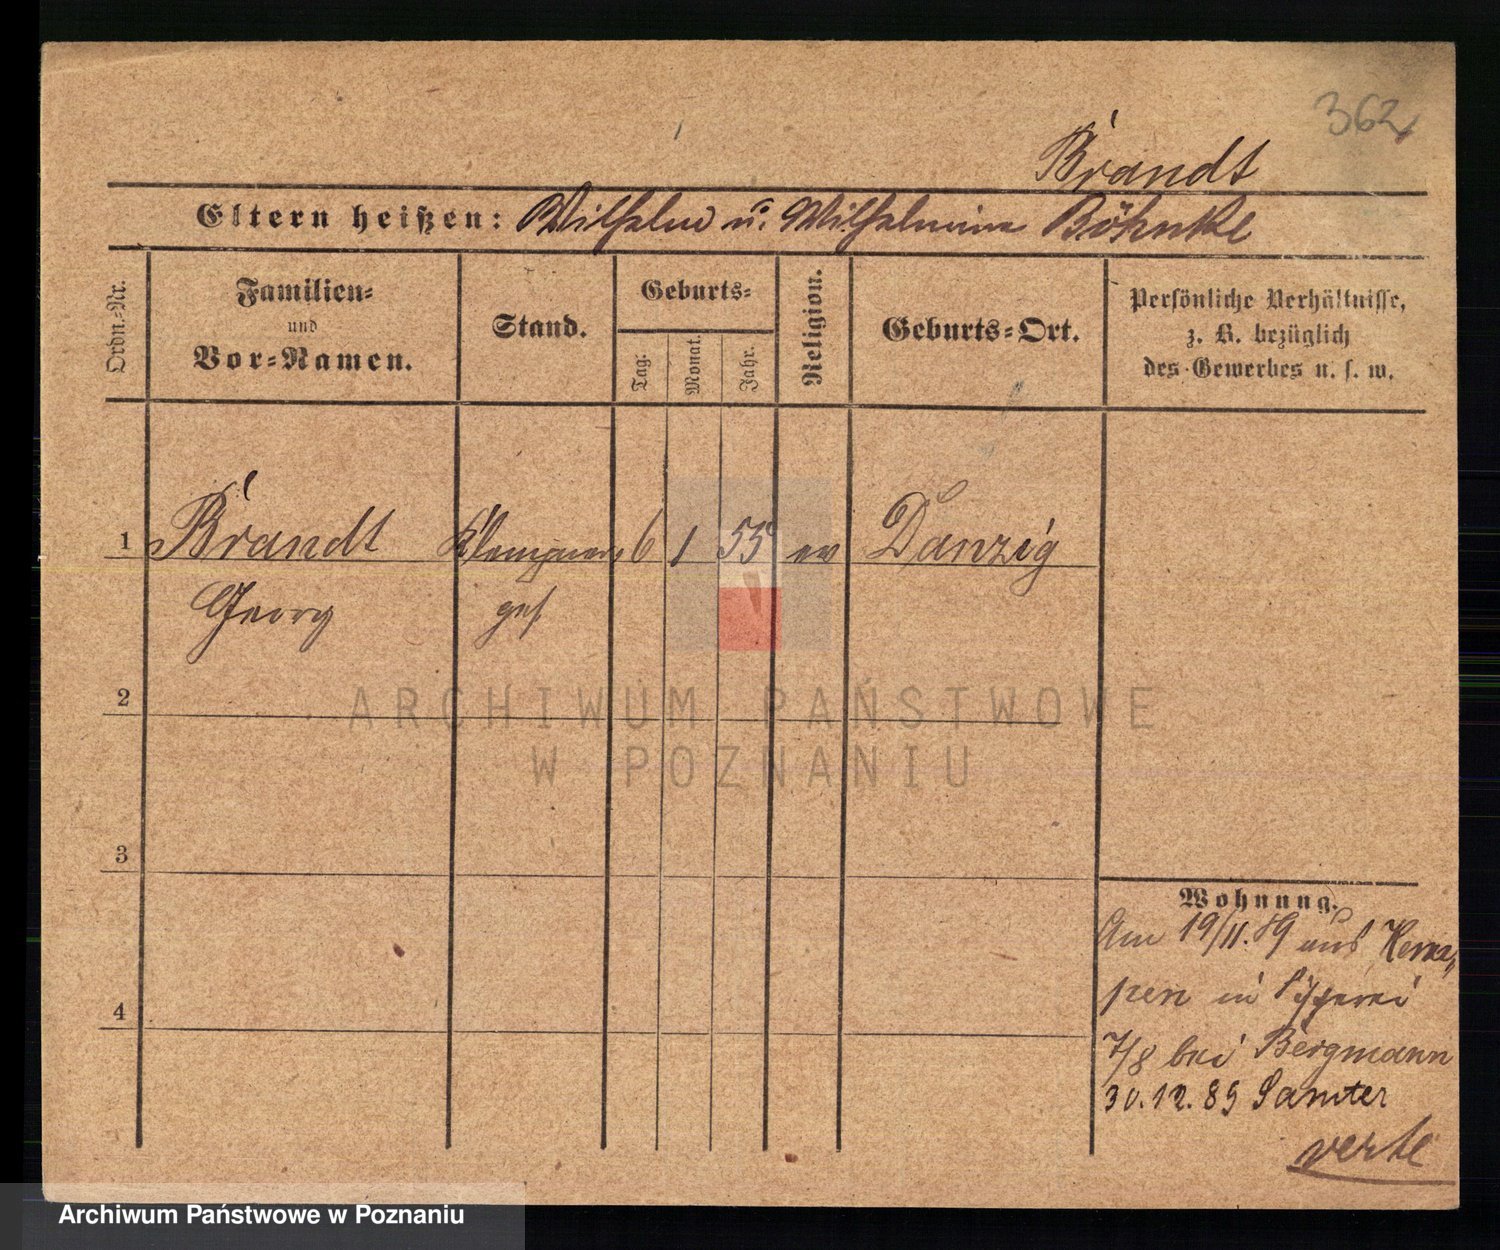 362
Brandt
Eltern heißen: Wilhelm u. Wilhelmine Böhnke
Ordn.-Nr.
Familien-
und
Vor-Namen.
Stand.
Geburts-
Tag:
Monat.
Jahr.
Religion.
Geburts-Ort.
Persönliche Verhältnisse,
z. B. bezüglich
des Gewerbes u. s. w.
1 Brandt Klempner 6 1 55 ev Danzig
Georg ges
2
3
4
Wohnung.
Am 19/11.89 aus
pen in
7/8 bei Bergmann
30.12.89 Samter
verte
ARCHIWUM PAŃSTWOWE
W POZNANIU
Archiwum Państwowe w Poznaniu